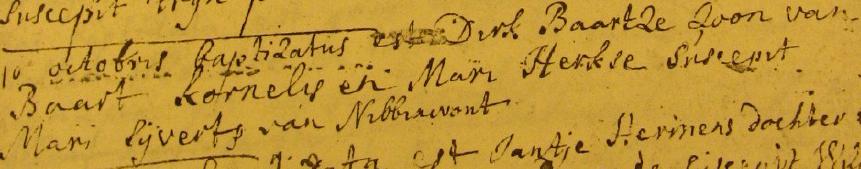 Suscepit
10 octobris baptizatus est Dirk Baartze Zoon van
Baart Kornelis en Mari Herkse Suscepit
Mari Sijverts van Nibbixwout
est Jantje Hermens dochter